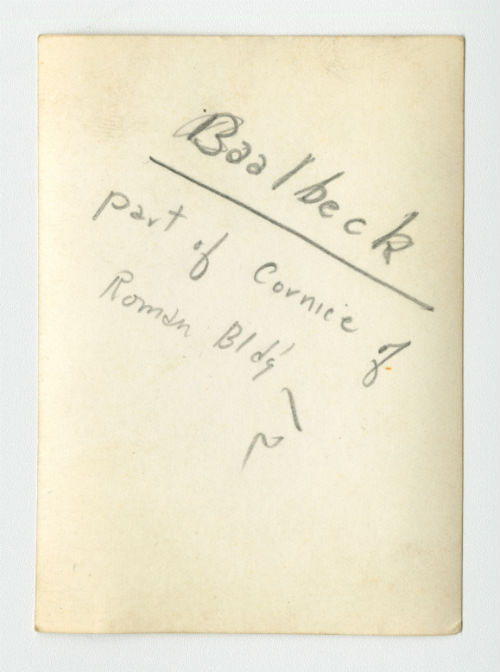 Baalbeck
part of Cornice of
Roman Bldg